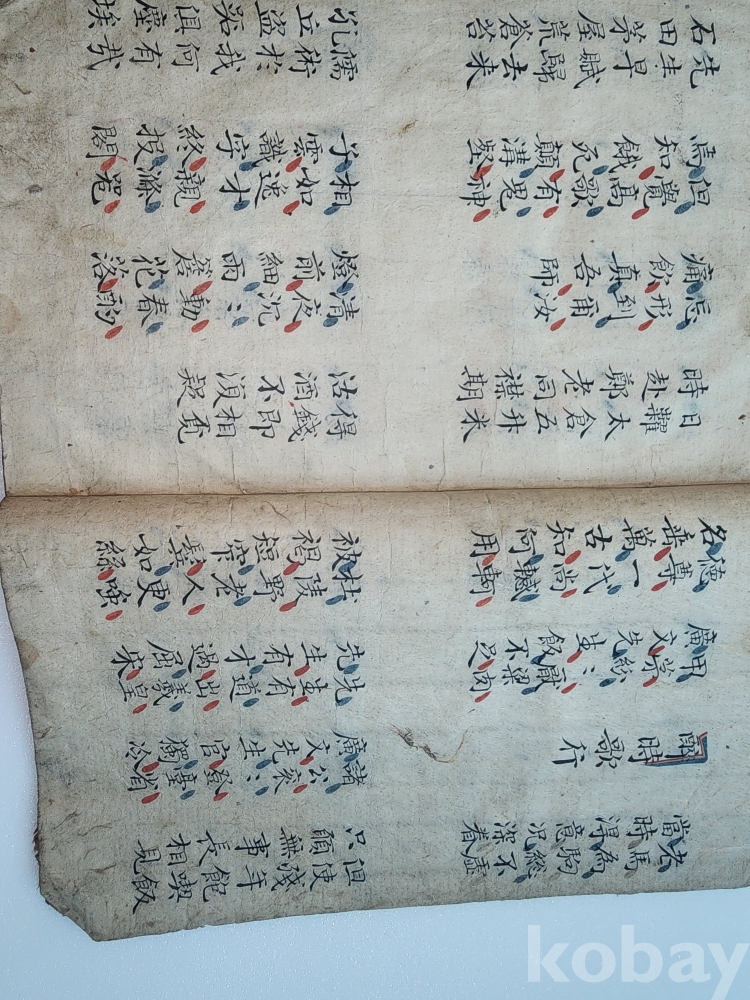 老馬為駒總不虛
當時得意況深眷
但使殘年飽喫飯
只願無事長相見
醉時歌行
諸公袞〻登臺省
廣文先生官獨冷
甲第紛〻厭粱肉
廣文先生飯不足
先生有道出羲皇
先生有才過屈宋
德尊一代尚轗軻
名垂萬古知何用
杜陵野老人更嗤
被褐短窄鬢如絲
日糴太倉五升米
時赴鄭老同襟期
得錢即相覓
沽酒不須疑
忘形到爾汝
痛飲真吾師
清夜沉〻動春酌
燈前細雨簷花落
但覺高歌有鬼神
焉知餓死顛溝壑
相如逸才親滌器
子雲識字終投閣
先生早賦歸去來
石田茅屋荒蒼苔
儒術於我何有哉
孔丘盜跖俱塵埃
kobay